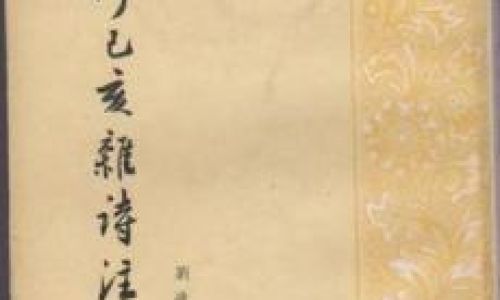 己亥雜诗注
劉